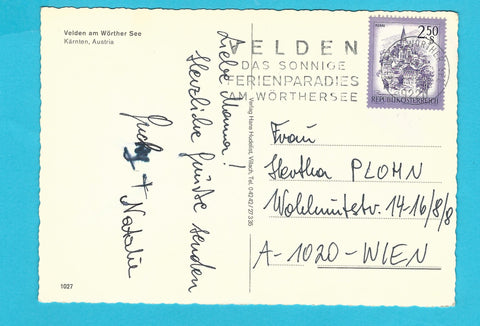 Velden am Wörther See
Kärnten, Austria
Liebe Mama!
Herzliche Grüsse senden
+ Natalie
1027
Verlag Hans Huderist, Villach, Tel. 04242/27336
VELDEN
DAS SONNIGE
FERIENPARADIES
AM WÖRTHERSEE
2.50
REPUBLIK ÖSTERREICH
Frau
Hertha PLOHN
Wohlmutstr. 14-16/8/8
A-1020-WIEN